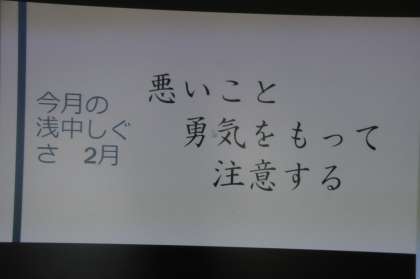 今月の
浅中しぐ
さ 2月
悪いこと
勇気をもって
注意する